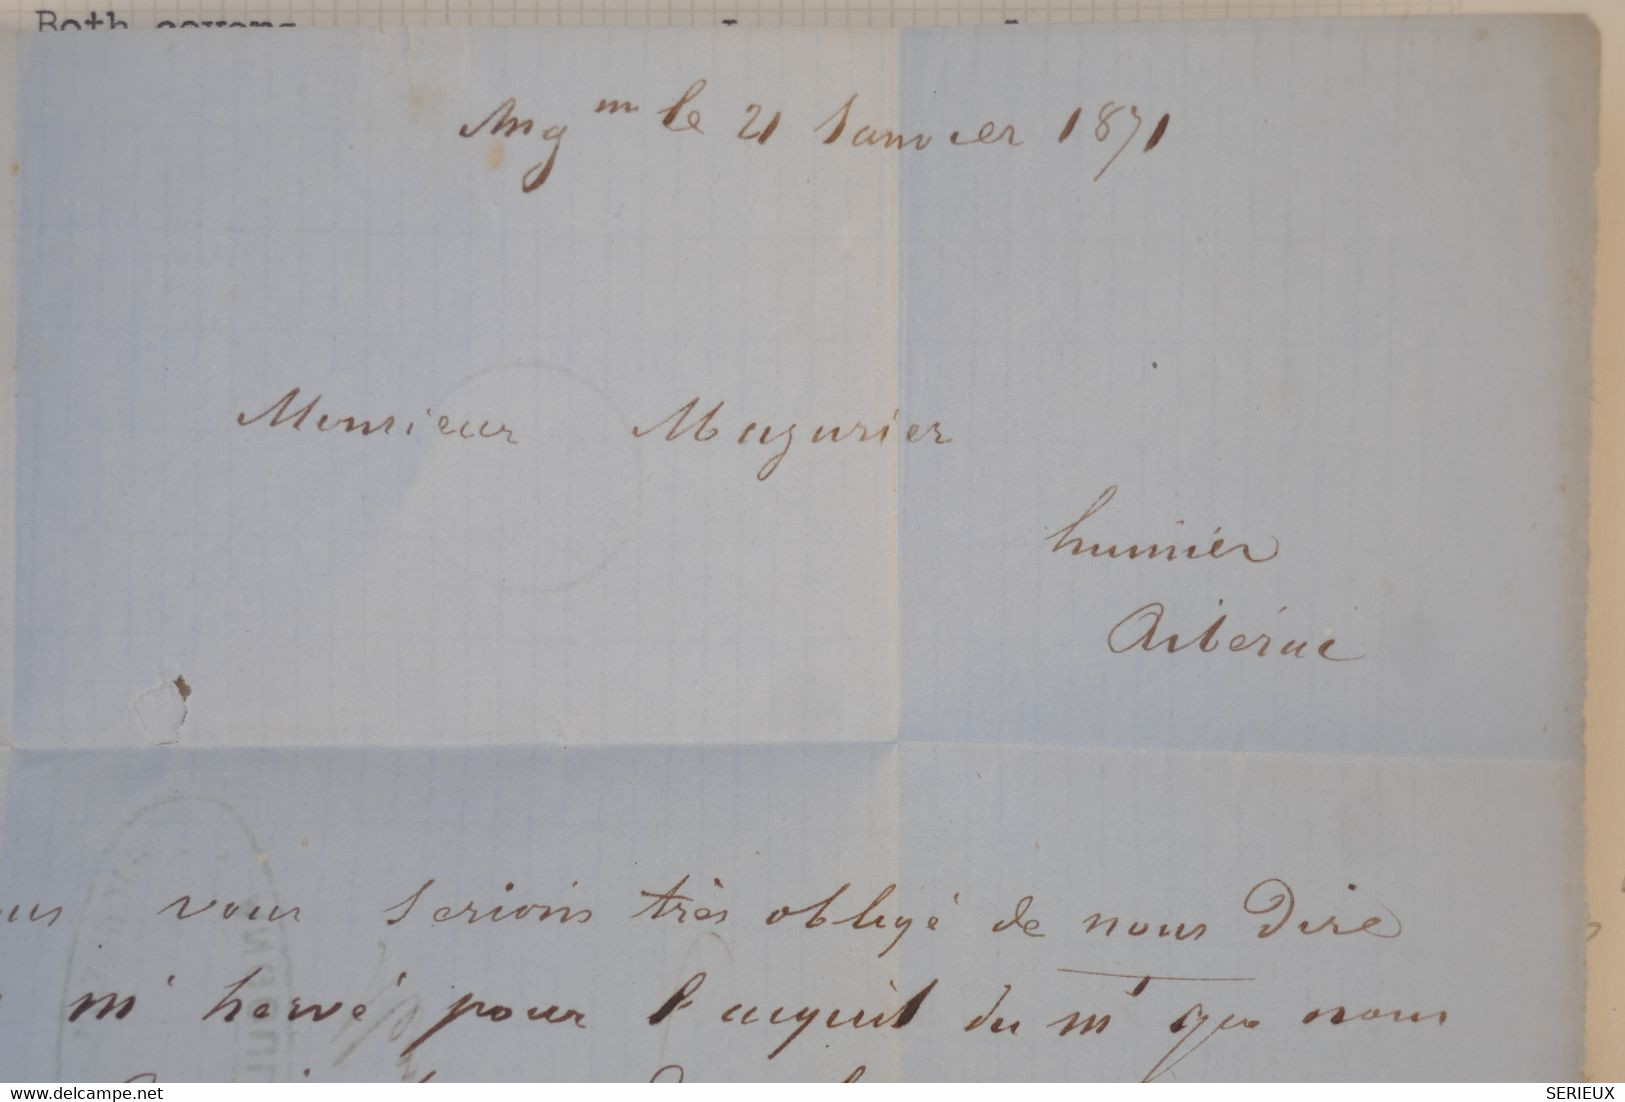 Both covers
Ang^m le 21 Janvier 1871
Monsieur Magurier
huissier
Ribérac
vous serions très obligé de nous Dire
m^r hervé pour l'acquit du m^t que nous
SERIEUX